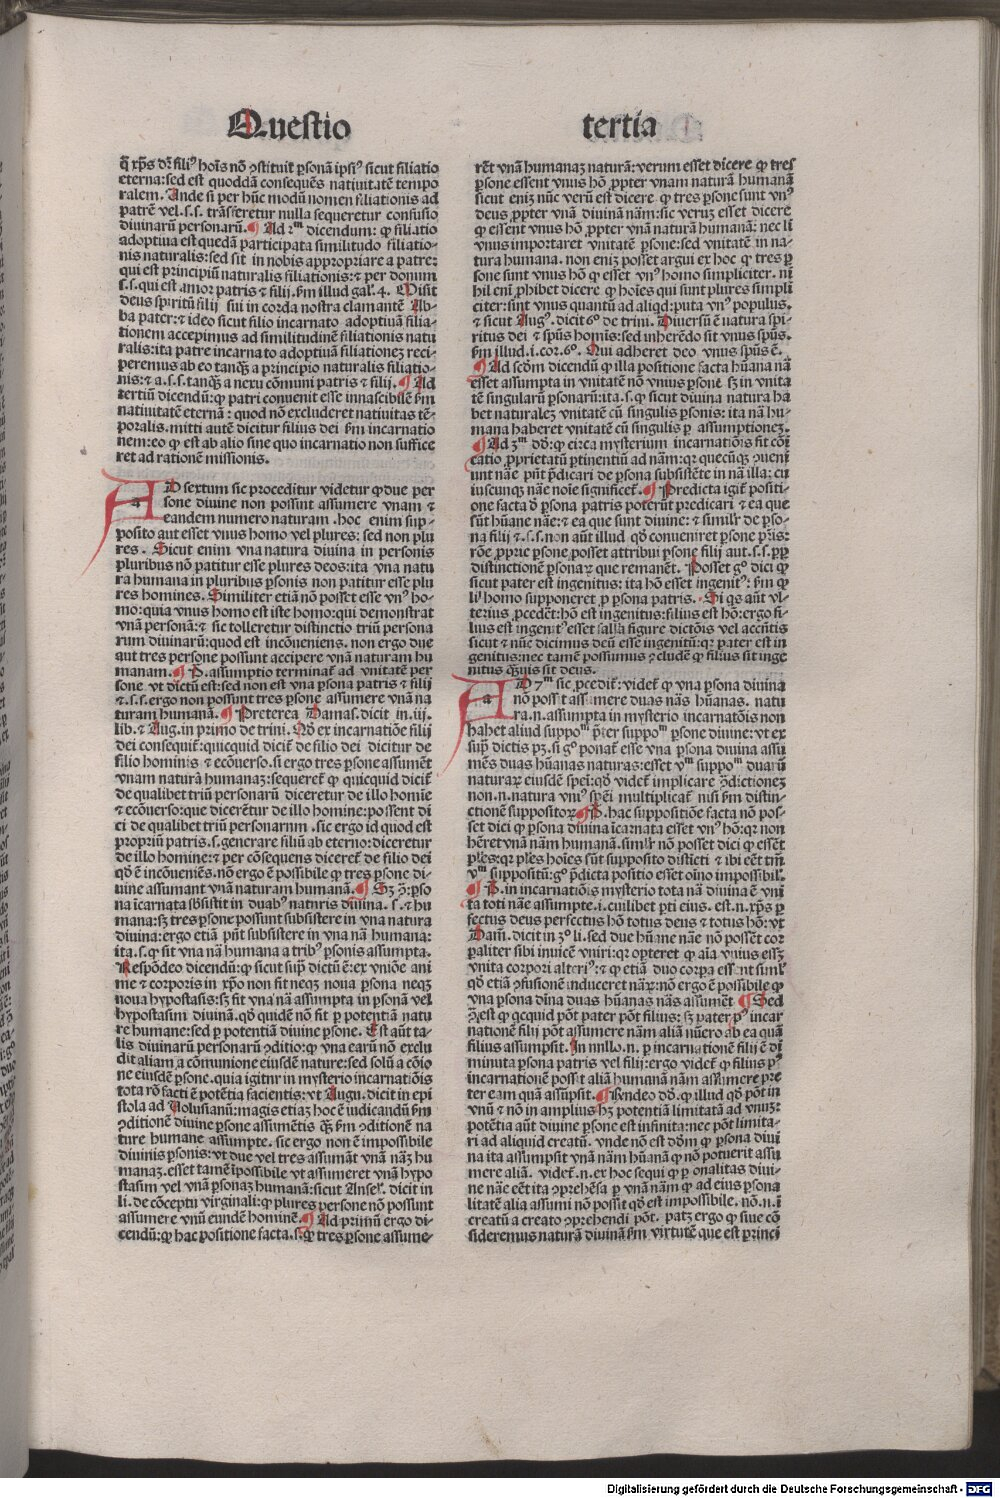 Questio tertia
q̃ xp̄s dr̃ fili⁹ hoĩs nō ɔstituit̃ ꝑsonā ipsi⁹ sicut filiatio
eterna: sed est quoddā consequēs natiuitatē tempo
ralem. Unde si per hũc modũ nomen filiationis ad
patrē vel .s.s. trāsferetur nulla sequeretur confusio
diuinarũ personarũ. ¶ Ad 2ᵐ dicendum: ꝙ filiatio
adoptiua est quedā participata similitudo filiatio-
nis naturalis: sed fit in nobis appropriare a patre:
qui est principiũ naturalis filiationis: ⁊ per donum
s.s. qui est amor patris ⁊ filij. ẜm illud gal. 4. Misit
deus spiritũ filij sui in corda nostra clamantē Ab-
ba pater: ⁊ ideo sicut filio incarnato adoptiuā filia-
tionem accepimus ad similitudinē filiationis natu
ralis: ita patre incarnato adoptiuā filiationeʒ reci-
peremus ab eo tanq̃ʒ a principio naturalis filiatio-
nis: ⁊ a .s.s. tanq̃ʒ a nexu cōmuni patris ⁊ filij. ¶ Ad
tertiũ dicendũ: ꝙ patri conuenit esse innascibilē ẜm
natiuitatē eternā: quod nō excluderet natiuitas tē-
poralis. mitti autē dicitur filius dei ẜm incarnatio
nem: eo ꝙ est ab alio sine quo incarnatio non suffice
ret ad rationē missionis.
AD sextum sic proceditur videtur ꝙ due per
sone diuine non possint assumere vnam ⁊
eandem numero naturam. hoc enim sup-
posito aut esset vnus homo vel plures: sed non plu
res. Sicut enim vna natura diuina in personis
pluribus nō patitur esse plures deos: ita vna natu
ra humana in pluribus ꝑsonis non patitur esse plu
res homines. Similiter etiā nō posset esse vn⁹ ho-
mo: quia vnus homo est iste homo: qui demonstrat
vnā personā: ⁊ sic tolleretur distinctio triũ persona
rum diuinarũ: quod est incōueniens. non ergo due
aut tres persone possunt accipere vnā naturam hu
manam. ¶ P. assumptio terminat̃ ad vnitatē per
sone vt dictũ est: sed non est vna ꝑsona patris ⁊ filij
⁊ .s.s. ergo non possunt tres ꝑsone assumere vnā na
turam humanā. ¶ Preterea Damas. dicit in .iij.
lib. ⁊ Aug. in primo de trini. Nō ex incarnatiōe filij
dei consequit̃: quicquid dicit̃ de filio dei dicitur de
filio hominis ⁊ ecōuerso. si ergo tres ꝑsone assumēt
vnam naturā humanaʒ: sequeret̃ ꝙ quicquid dicit̃
de qualibet triũ personarũ diceretur de illo homīe
⁊ ecōuerso: que dicerētur de illo homine: possent di
ci de qualibet triũ personarum. sic ergo id quod est
propriũ patris .s. generare filiũ ab eterno: diceretur
de illo homine: ⁊ per cōsequens diceret̃ de filio dei
qd̄ ē incōueniēs. nō ergo ē possibile ꝙ tres ꝑsone di-
uine assumant vnā naturam humanā. ¶ Sʒ ɔ̄: ꝑso
na īcarnata sbsistit in duab⁹ naturis diuina .s. ⁊ hu
mana: sʒ tres ꝑsone possunt subsistere in vna natura
diuina: ergo etiā pñt subsistere in vna nā humana:
ita .s. ꝙ sit vna nā humana a trib⁹ ꝑsonis assumpta.
Respōdeo dicendũ: ꝙ sicut supͣ dictũ ē: ex vniōe ani
me ⁊ corporis in xp̄o non fit neqʒ noua ꝑsona neqʒ
noua hypostasis: sʒ fit vna nā assumpta in ꝑsonā vel
hypostasim diuinā. qd̄ quidē nō fit ꝑ potentiā natu
re humane: sed ꝑ potentiā diuine ꝑsone. Est aũt ta-
lis diuinarũ personarũ ɔditio: ꝙ vna earũ nō exclu
dit aliam a cōmunione eiusdē nature: sed solũ a cōio
ne eiusdē ꝑsone. quia igitur in mysterio incarnatiōis
tota rō facti ē potētia facientis: vt Augu. dicit in epi
stola ad Volusianũ: magis etiaʒ hoc ē iudicandũ ẜm
ɔditionē diuine ꝑsone assumētis q̃ʒ ẜm ɔditionē na
ture humane assumpte. sic ergo non ē impossibile
diuinis ꝑsonis: vt due vel tres assumāt vnā nāʒ hu
manaʒ. esset tamē īpossibile vt assumeret vnā hypo
stasim vel vnā ꝑsonaʒ humanā: sicut Ansel. dicit in
li. de cōceptu virginali: ꝙ plures persone nō possunt
assumere vnũ eundē hominē. ¶ Ad primũ ergo di-
cendũ: ꝙ hac positione facta .s. ꝙ tres ꝑsone assume-
rēt vnā humanaʒ naturā: verum esset dicere ꝙ tres
ꝑsone essent vnus hō ꝓpter vnam naturā humanā
sicut eniʒ nũc verũ est dicere ꝙ tres ꝑsone sunt vn⁹
deus ꝓpter vnā diuinā nām: sic veruʒ esset dicere
ꝙ essent vnus hō ꝓpter vnā naturā humanā: nec li
vnus importaret vnitatē ꝑsone: sed vnitatē in na-
tura humana. non eniʒ posset argui ex hoc ꝙ tres ꝑ
sone sunt vnus hō ꝙ esset vn⁹ homo simpliciter. ni
hil eni ꝓhibet dicere ꝙ hoīes qui sunt plures simpli
citer: sint vnus quantũ ad aliqd: puta vn⁹ populus.
⁊ sicut Aug⁹. dicit 6º de trini. Diuersũ ē natura spi-
ritus dei ⁊ spũs homīs: sed inherēdo fit vnus spũs.
ẜm illud .i. cor. 6º. Qui adheret deo vnus spũs ē.
¶ Ad scd̄m dicendũ ꝙ illa positione facta hũana nā
esset assumpta in vnitatē nō vnius ꝑsone sʒ in vnita
tē singularũ ꝑsonarũ: ita .s. ꝙ sicut diuina natura ha
bet naturaleʒ vnitatē cũ singulis ꝑsonis: ita nā hu-
mana haberet vnitatē cũ singulis ꝑ assumptioneʒ.
¶ Ad 3ᵐ dd̄: ꝙ circa mysterium incarnatiōis fit cōi
catio ꝓprietatũ ꝑtinentiũ ad nām: qr quecũqʒ ɔueni
unt nāe pñt p̄dicari de ꝑsona subsistēte in nā illa: cu
iuscunqʒ nāe noīe significet̃. ¶ Predicta igit̃ positi-
one facta d̄ ꝑsona patris poterũt predicari ⁊ ea que
sũt hũane nāe: ⁊ ea que sunt diuine: ⁊ simil̃r de ꝑso-
na filij ⁊ .s.s. non aũt illud qd̄ conueniret ꝑsone pr̄is:
rōe ꝓprie ꝑsone posset attribui ꝑsone filij aut .s.s. ꝓꝑ
distinctionē ꝑsonaꝝ que remanēt. Posset g⁰ dici ꝙ
sicut pater est ingenitus: ita hō esset ingenit⁹: ẜm ꝙ
li⁹ homo supponeret ꝓ ꝑsona patris. Si qs aũt vl-
terius ꝓcedet̃: hō est ingenitus: filius est hō: ergo fi-
lius est ingenit⁹ esset fallā figure dictōis vel accñtis
sicut ⁊ nũc dicimus deũ esse ingenitũ: qr pater est in
genitus: nec tamē possumus ɔcludē ꝙ filius sit inge
nitus q̃ʒuis sit deus.
AD 7ᵐ sic ꝓcedit̃: videt̃ ꝙ vna ꝑsona diuina
nō possit assumere duas nās hũanas. natu
ra .n. assumpta in mysterio incarnatōis non
habet aliud suppoᵐ p̄ter suppoᵐ ꝑsone diuine: vt ex
supͣ dictis pʒ. si g⁰ ponat̃ esse vna ꝑsona diuina assu
mēs duas hũanas naturas: esset vᵐ suppoᵐ duarũ
naturaꝝ eiusdē spei: qd̄ videt̃ implicare ɔ̄dictioneʒ
non .n. natura vni⁹ spēi multiplicat̃ nisi ẜm distin-
ctionē suppositoꝝ. ¶ P. hac suppositiōe facta nō pos-
set dici ꝙ ꝑsona diuina īcarnata esset vn⁹ hō: qr non
hēret vnā nām humanā. simil̃r nō posset dici ꝙ essēt
pl̃es: qr pl̃es hoīes sũt supposito distīcti ⁊ ibi eēt tm̄
vᵐ suppositũ: g⁰ p̄dicta positio esset oīno impossibil̃.
¶ P. in incarnatiōis mysterio tota nā diuina ē vni
ta toti nāe assumpte .i. cuilibet ꝑti eius. est .n. xp̄s ꝑ
fectus deus perfectus hō totus deus ⁊ totus hō: vt
Dam. dicit in 3º li. sed due hũane nāe nō possēt cor
ꝑaliter sibi inuicē vniri: qr opteret ꝙ aīa vnius essʒ
vnita corpori alteri⁹: ⁊ ꝙ etiā duo corpa essent simul̃
qd̄ etiā ɔfusionē induceret nāꝝ: nō ergo ē possibile ꝙ
vna ꝑsona diīna duas hũanas nās assumēt. ¶ Sed
ɔ̄ est ꝙ qcquid pōt pater pōt filius: sʒ pater p⁹ incar
nationē filij pōt assumere nām aliā nũero ab ea quā
filius assumpsit. In nullo .n. ꝑ incarnationē filij ē di
minuta ꝑsona patris vel filij: ergo videt̃ ꝙ filius p⁹
incarnationē possit aliā humanā nām assumere pre
ter eam quā assũpsit. ¶ Rñdeo dd̄. ꝙ illud qd̄ pōt in
vnũ ⁊ nō in amplius hʒ potentiā limitatā ad vnuʒ:
potētia aũt diuine ꝑsone est infinita: nec pōt limita-
ri ad aliquid creatũ. vnde nō est dōm ꝙ ꝑsona diui
na ita assumpsit vnā nām hũanā ꝙ nō potuerit assu
mere aliā. videt̃ .n. ex hoc sequi ꝙ ꝑsonalitas diui-
ne nāe eēt ita ɔprehēsa ꝑ vnā nām ꝙ ad eius ꝑsona
litatē alia assumi nō possit qd̄ est impossibile. nō .n. ī
creatũ a creato ɔprehendi pōt. patʒ ergo ꝙ siue cō
sideremus naturā diuinā ẜm virtutē que est ꝑrinci
Digitalisierung gefördert durch die Deutsche Forschungsgemeinschaft - DFG